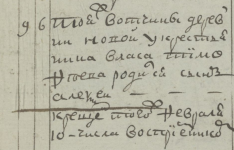 96 Тоѣ вотчины дерев
ни новой у крестья
нина власа тимо
ѳеева родился сынъ
алеѯей
крещенъ тогоѣ Февраля
10 числа восприемнико